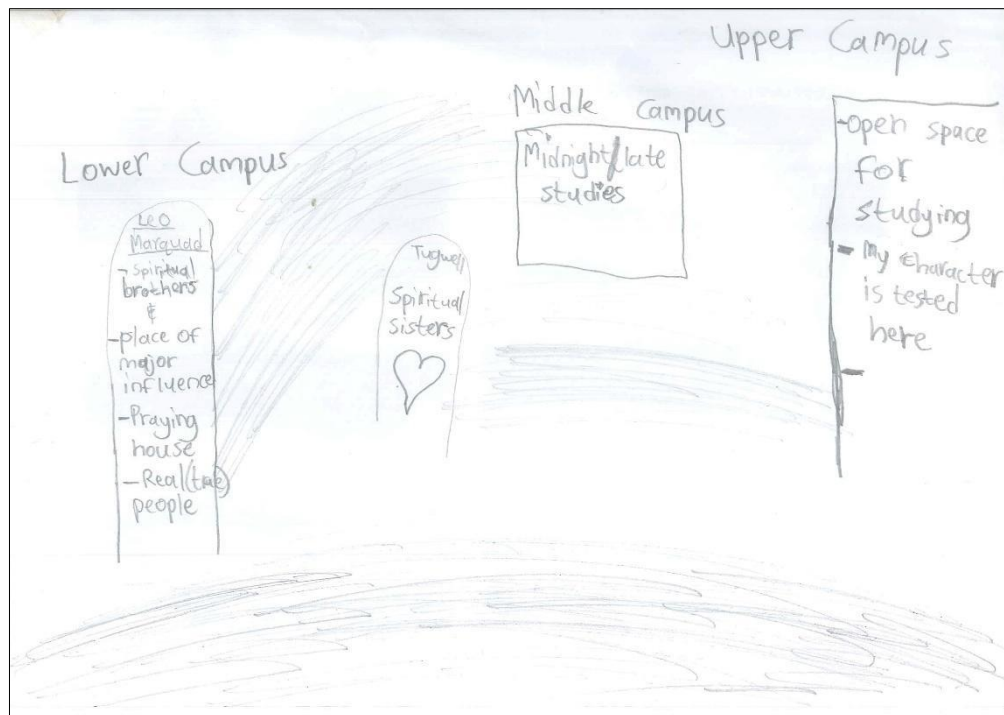 Upper Campus
Middle Campus
Lower Campus
Leo
Marquad
- Spiritual
brothers
&
- place of
major
influence
- Praying
house
- Real (true)
people
Tugwell
Spiritual
sisters
Midnight/late
studies
- Open space
for
studying
- My character
is tested
here
-